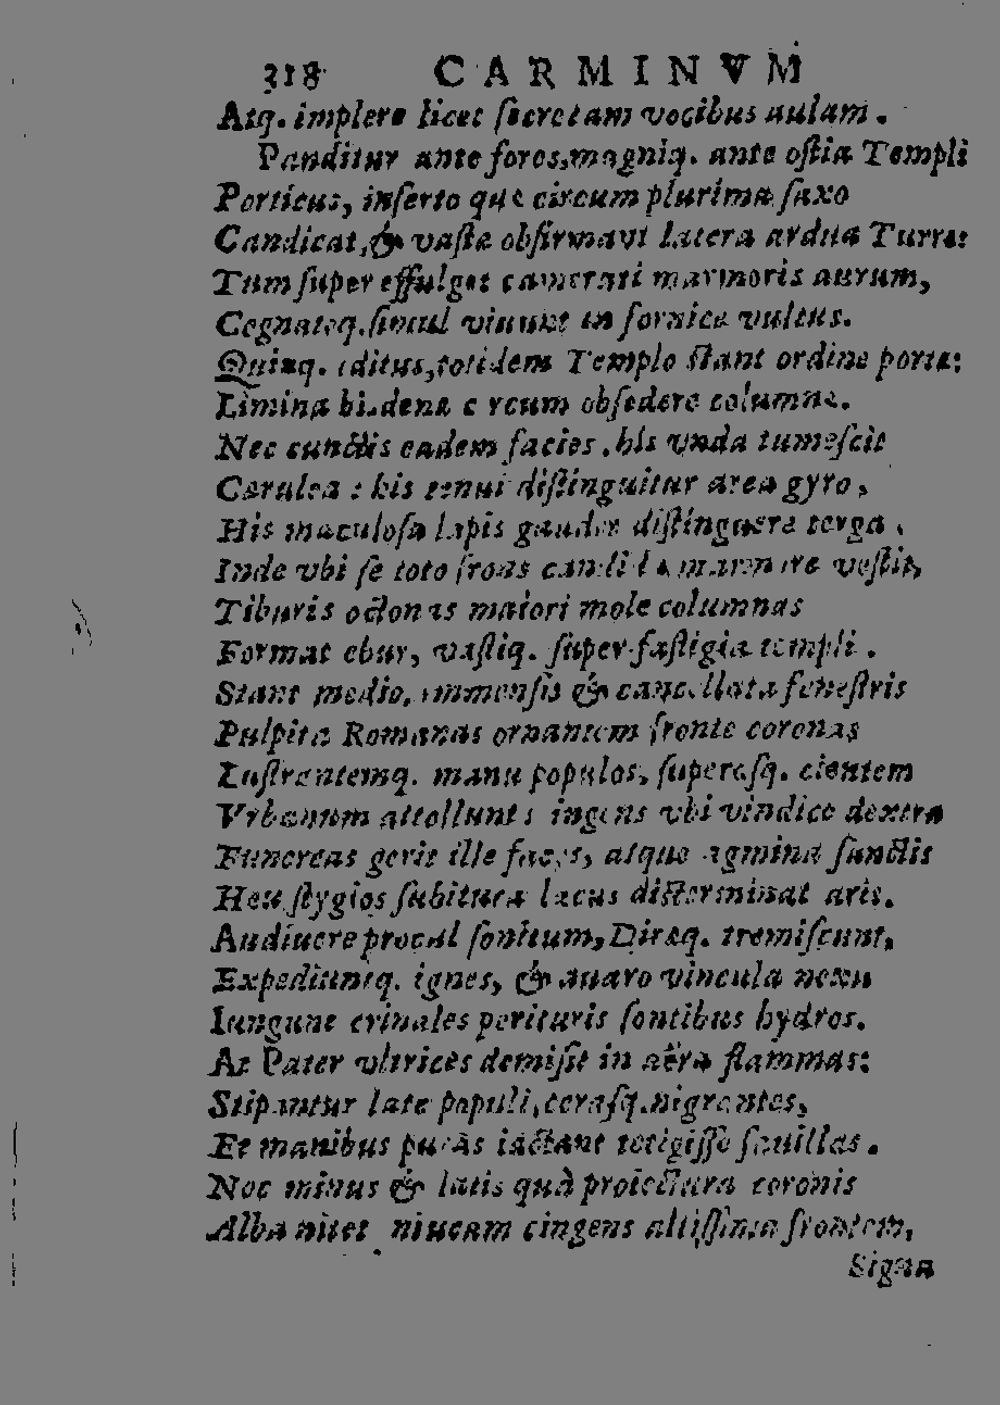 318 CARMINVM
Atq. implere licet ſecretam vocibus aulam.
Panditur ante fores, magniq. ante oſtia Templi
Porticus, inſerto quæ circum plurima ſaxo
Candicat, & vaſtæ obfirmavt latera ardua Turres:
Tum ſuper effulget camerati marmoris aurum,
Cognatoq. ſimul viuunt in fornice vultus.
Quinq. aditus, totidem Templo ſtant ordine portæ:
Limina bisdenæ circum obſedere columnæ.
Nec cunctis eadem facies, his vnda tumeſcit
Cærulea: his tenui diſtinguitur area gyro,
His maculoſa lapis gaudet diſtinguere terga,
Inde vbi ſe toto frons candida marmore veſtit,
Tiburis octonas maiori mole columnas
Format ebur, vaſtiq. ſuper faſtigia templi.
Stant medio, immenſis & cancellata feneſtris
Pulpita Romanas ornantem fronte coronas
Luſtrantemq. manu populos, ſuperaſq. cientem
Vrbanum attollunt: ingens vbi vindice dextra
Funereas gerit ille faces, atque agmina ſanctis
Heu ſtygios ſubitura lacus diſterminat aris.
Audiuere procul ſonitum, Diræq. tremiſcunt,
Expediuntq. ignes, & auaro vincula nexu
Iungunt crinales perituris ſontibus hydros.
At Pater vltrices demiſit in aëra flammas:
Stipantur late populi, ceraſq. nigrantes,
Et manibus puras iactant tetigiſſe fauillas.
Nec minus & latis quà proiectura coronis
Alba nitet niueam cingens altiſſima frontem,
Signa